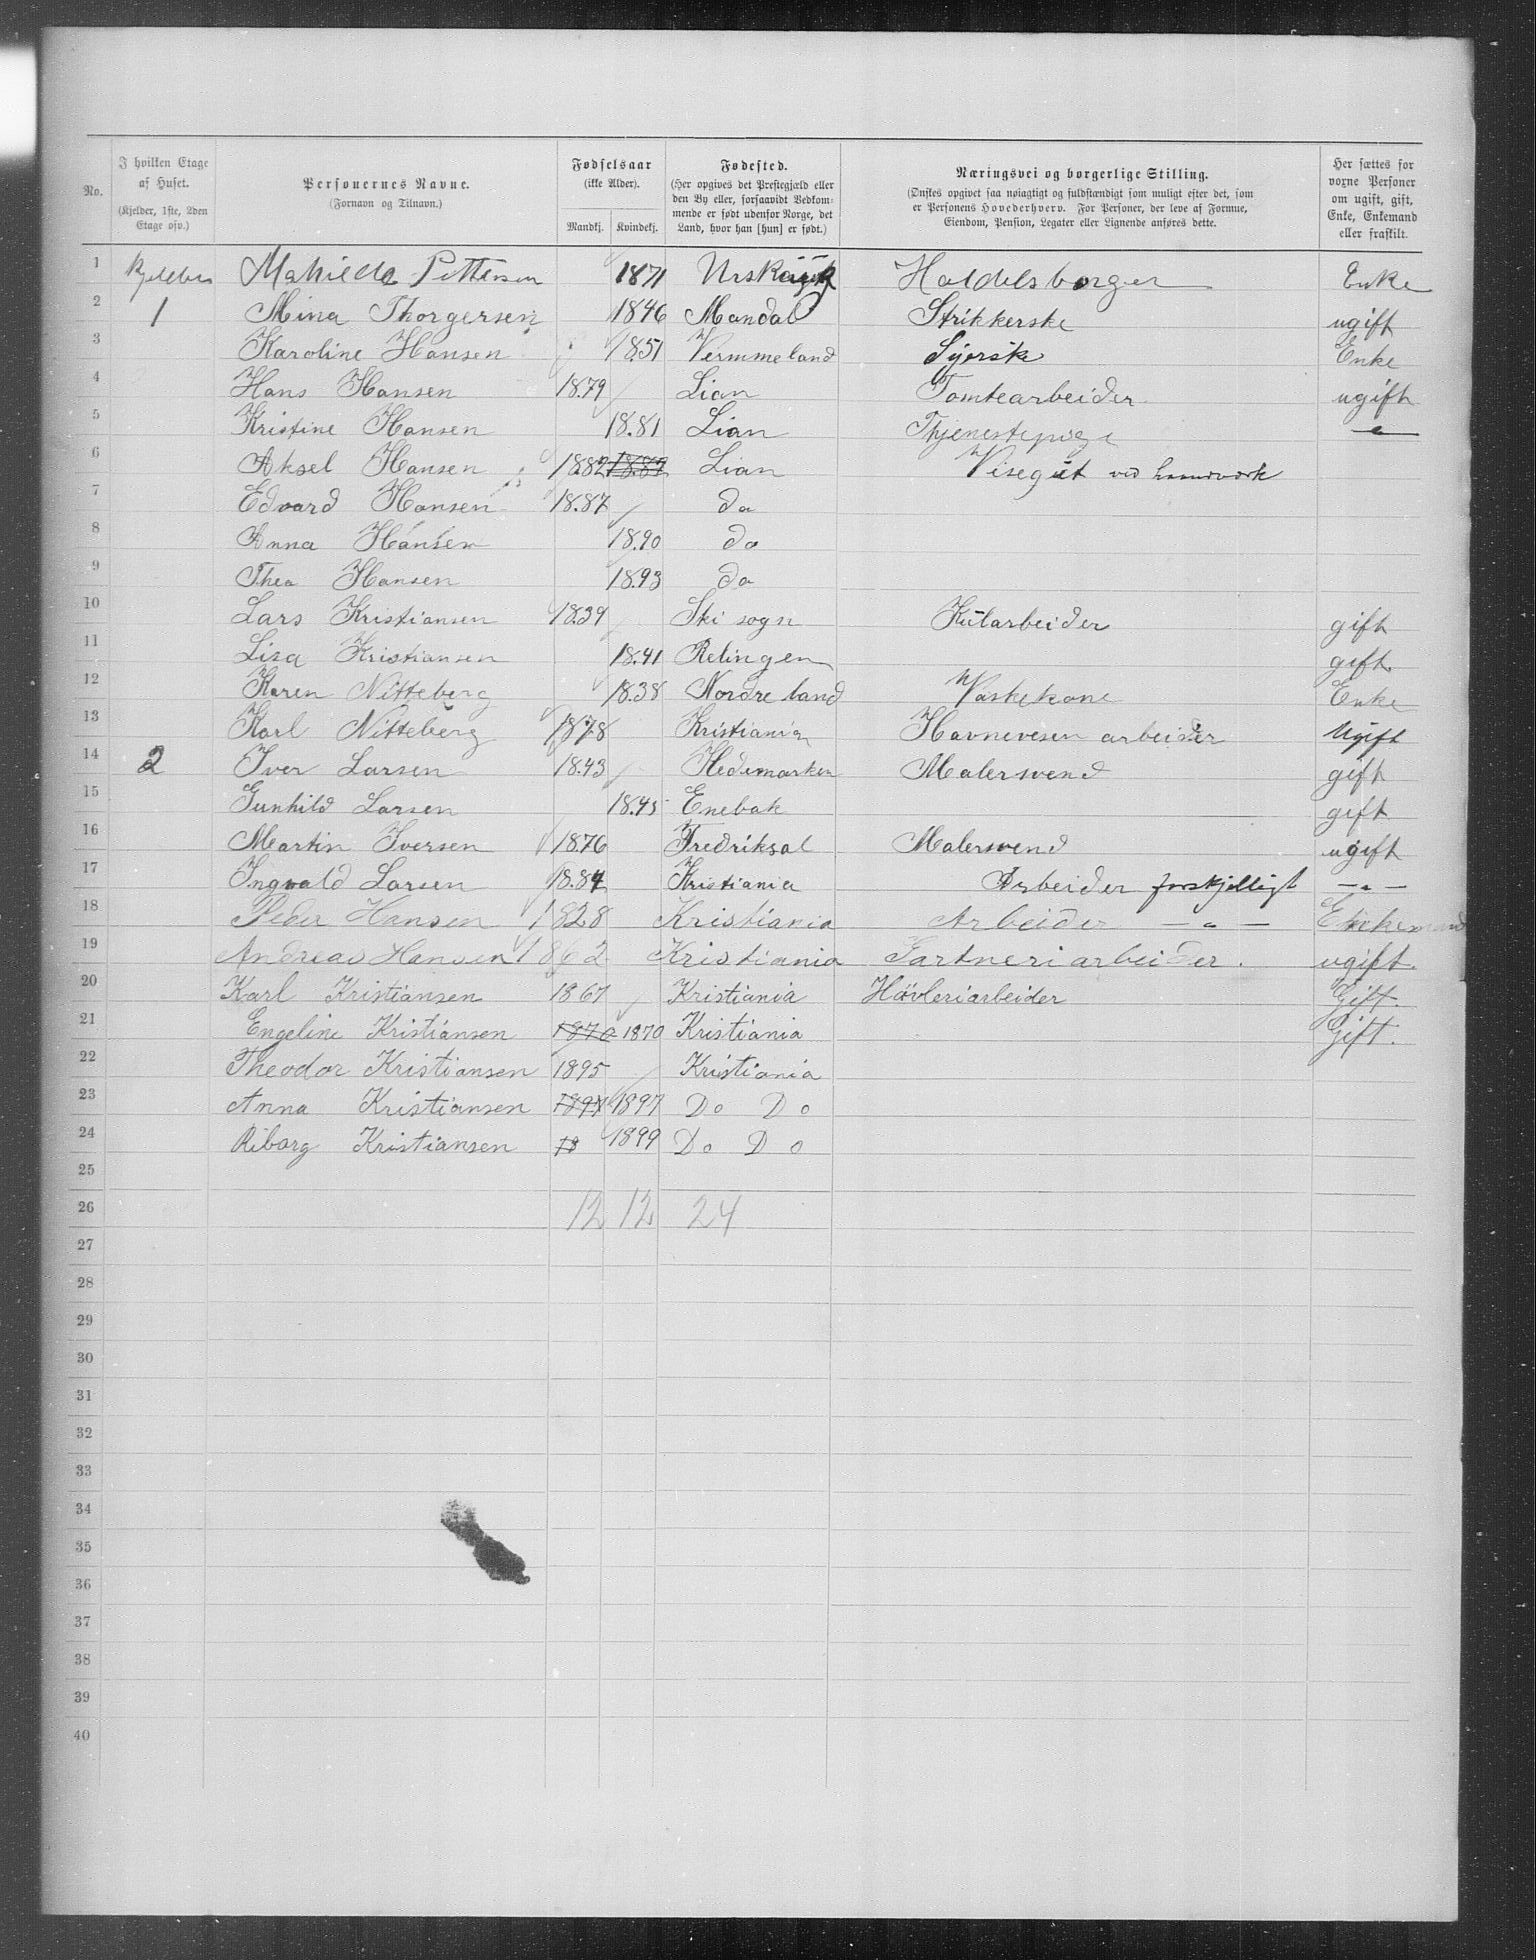 No.
I hvilken Etage af Huset.
(Kjelder, 1ste, 2den Etage osv.)
Personernes Navne.
(Fornavn og Tilnavn.)
Fødselsaar
(ikke Alder).
Mandkj. Kvindekj.
Fødested.
(Her opgives det Præstegjæld eller den By eller, forsaavidt Vedkommende er født udenfor Norge, det Land, hvor han [hun] er født.)
Næringsvei og borgerlige Stilling.
(Ønskes opgivet saa nøiagtigt og fuldstændigt som muligt efter det, som er Personens Hovederhverv. For Personer, der leve af Formue, Eiendom, Pension, Legater eller Lignende anføres dette.
Her sættes for voxne Personer om ugift, gift, Enke, Enkemand eller fraskilt.
1 Mathilde Pettersen 1871 Urskoug Haldelsborger Enke
2 1 Mina Thorgersen 1846 Mandal Strikkerske ugift
3 Karoline Hansen 1851 Vermmeland Syerske Enke
4 Hans Hansen 1879 Lian Tomtearbeider ugift
5 Kristine Hansen 1881 Lian Thjenestepige — " —
6 Aksel Hansen 1882 1882 Lian Visegut ved
7 Edvard Hansen 1887 do
8 Anna Hansen 1890 do
9 Thea Hansen 1893 do
10 Lars Kristiansen 1839 Ski sogn Kularbeider gift
11 Lisa Kristiansen 1841 Relingen gift
12 Karen Nitteberg 1838 Nordre land Vaskekone Enke
13 Karl Nitteberg 1878 Kristiania Havnevesen arbeider Ugift
14 2 Iver Larsen 1843 Hedemarken Malersvend gift
15 Gunhild Larsen 1845 Enebak gift
16 Martin Iversen 1876 Fredriksal Malersvend ugift
17 Ingvald Larsen 1884 Kristiania Arbeider forskjelligt — " —
18 Peder Hansen 1828 Kristiania Arbeider — " — Enkemand
19 Andreas Hansen 1862 Kristiania Gartneriarbeider. ugift.
20 Karl Kristiansen 1867 Kristiania Høvleriarbeider Gift.
21 Engeline Kristiansen 1870 1870 Kristiania Gift.
22 Theodor Kristiansen 1895 Kristiania
23 Anna Kristiansen 1897 1897 Do Do
24 Riborg Kristiansen 18 1899 Do Do
25
26 12 12 24
27
28
29
30
31
32
33
34
35
36
37
38
39
40